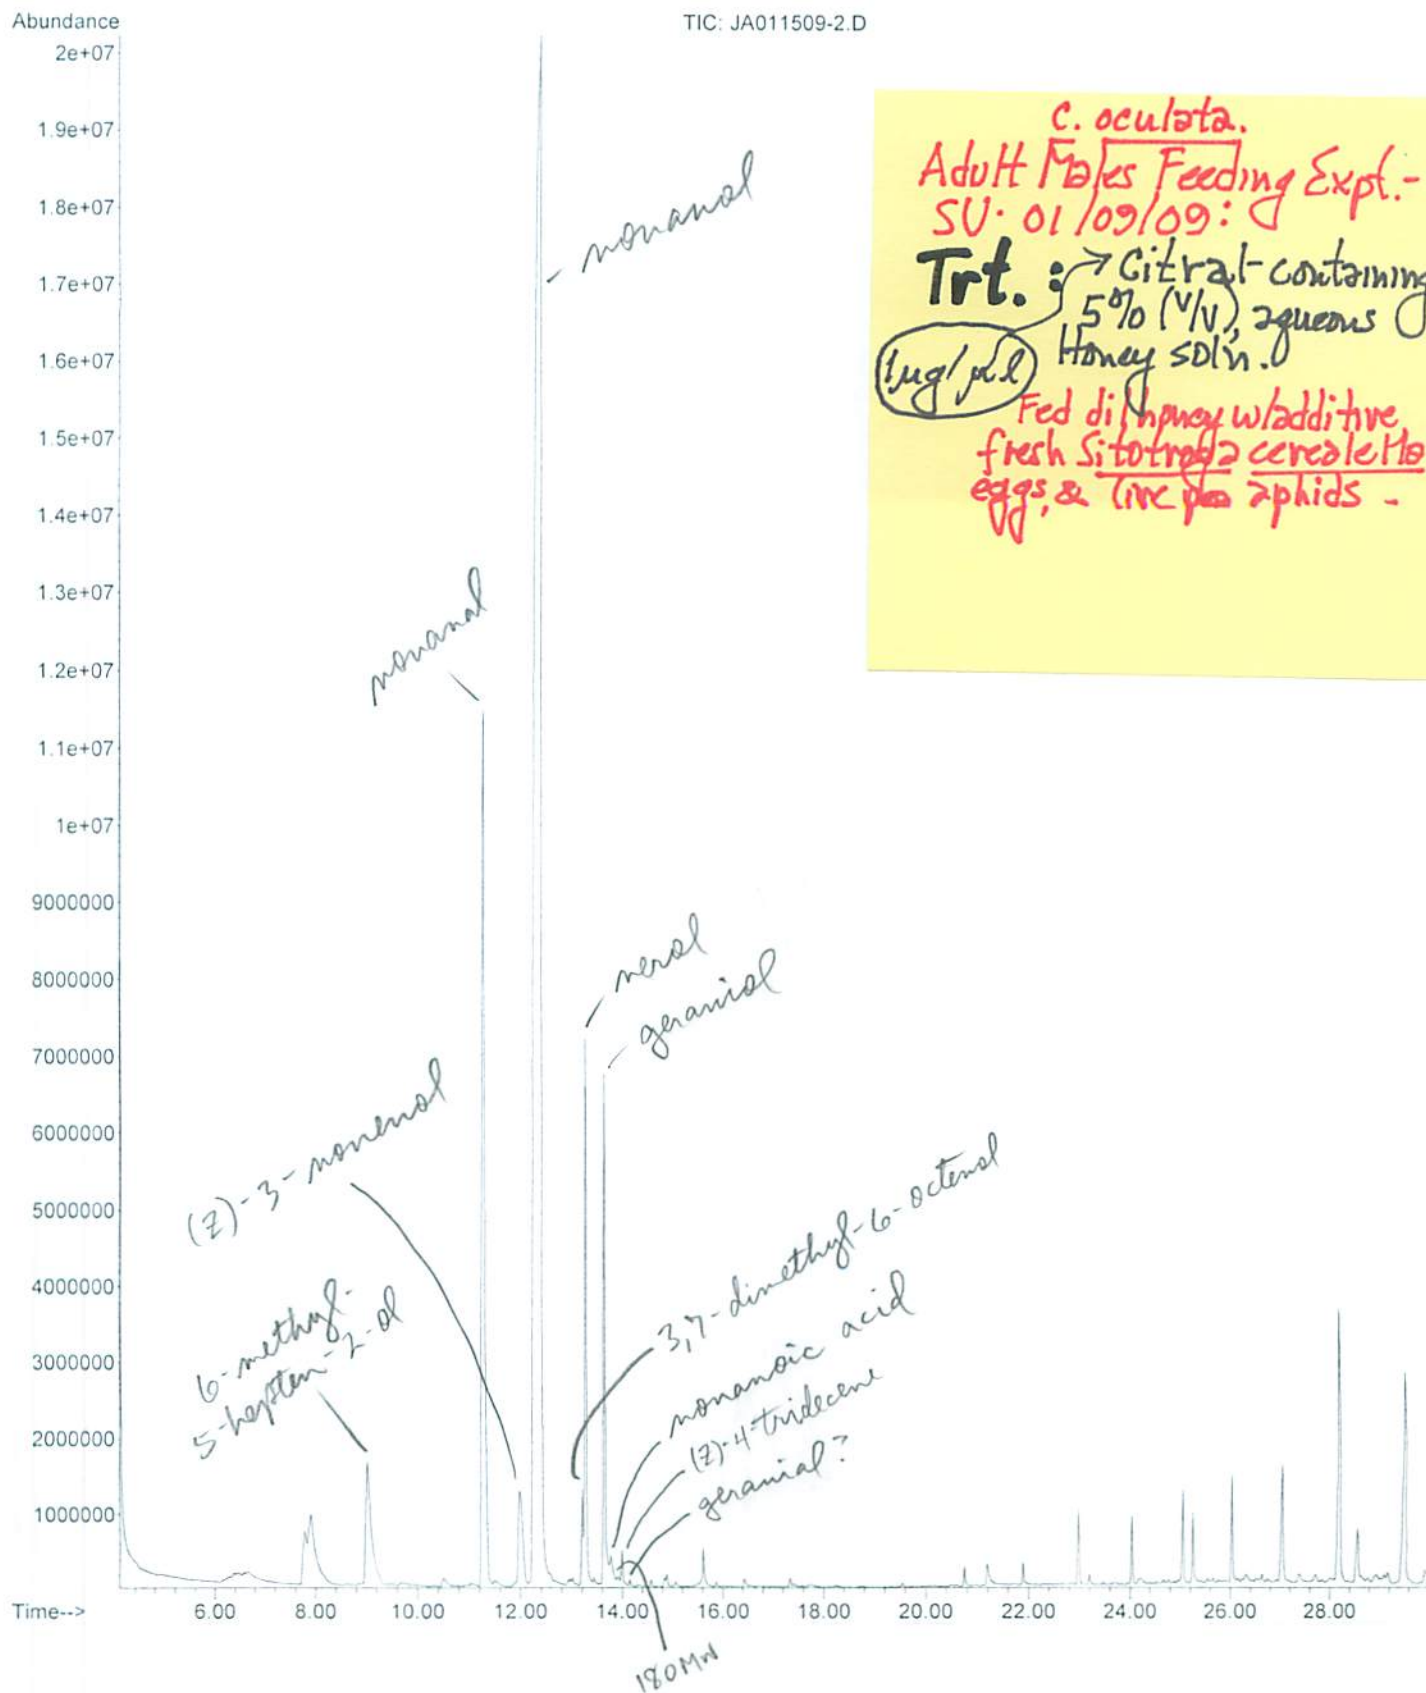 Abundance
TIC: JA011509-2.D
2e+07
1.9e+07
1.8e+07
1.7e+07
1.6e+07
1.5e+07
1.4e+07
1.3e+07
1.2e+07
1.1e+07
1e+07
9000000
8000000
7000000
6000000
5000000
4000000
3000000
2000000
1000000
Time-->
6.00 8.00 10.00 12.00 14.00 16.00 18.00 20.00 22.00 24.00 26.00 28.00
C. oculata.
Adult Males Feeding Expt.-
SU. 01/09/09:
Trt. : Citral-containing
5% (V/V), aqueous
Honey soln.
1µg/µl
Fed dil honey w/additive,
fresh Sitotroga cerealella
eggs, & live pea aphids -
nonanol
nonanal
nerol
geraniol
(Z)-3-nonenol
6-methyl-
5-hepten-2-ol
3,7-dimethyl-6-octenol
nonanoic acid
(Z)-4-tridecene
geranial?
180MW